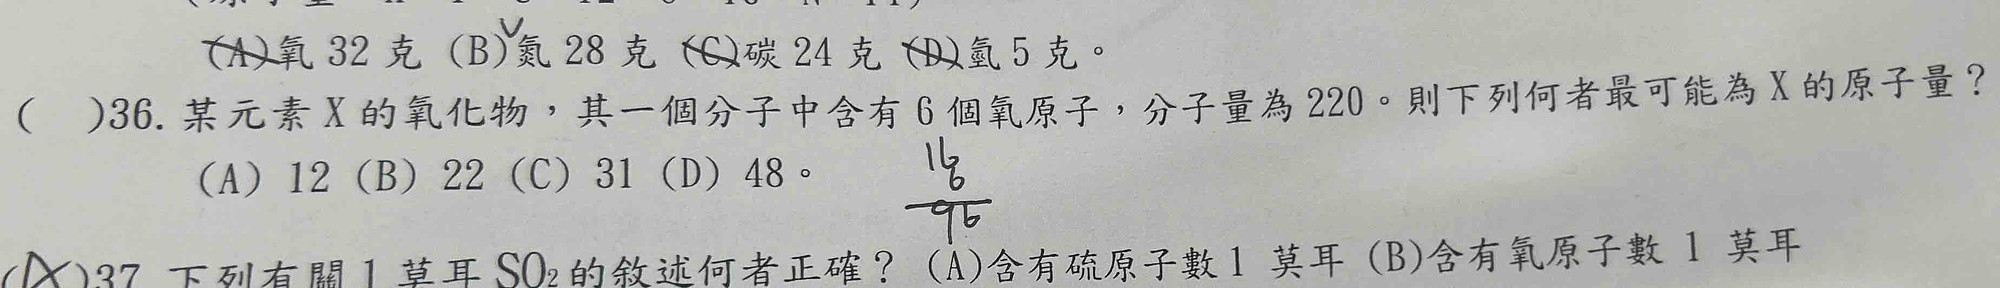 (A)氧 32 克 (B)氮 28 克 (C)碳 24 克 (D)氫 5 克。
( )36. 某元素 X 的氧化物，其一個分子中含有 6 個氧原子，分子量為 220。則下列何者最可能為 X 的原子量？
(A) 12 (B) 22 (C) 31 (D) 48。
16
6
96
37. 下列有關 1 莫耳 SO₂ 的敘述何者正確？ (A)含有硫原子數 1 莫耳 (B)含有氧原子數 1 莫耳